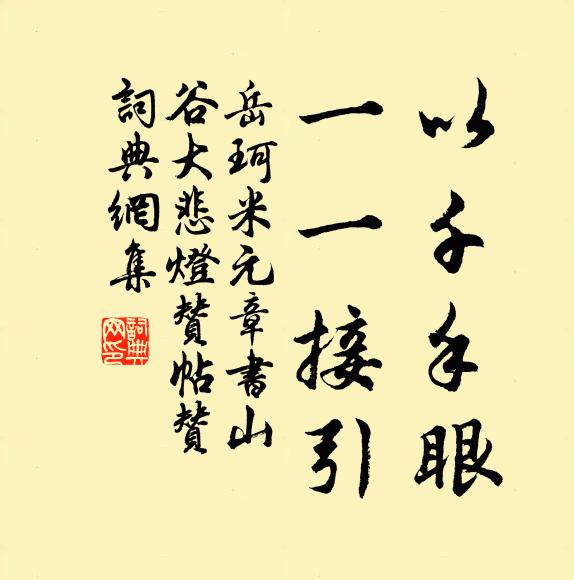 以千手眼
一一接引
岳珂米元章書山
谷大悲燈贊帖贊
詞典網集
詞典
网印